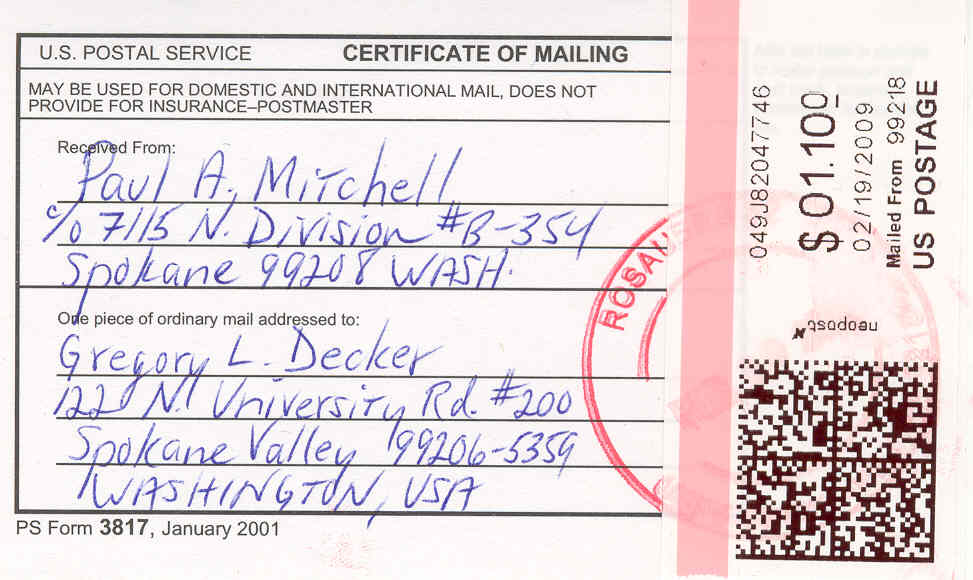 U.S. POSTAL SERVICE CERTIFICATE OF MAILING
MAY BE USED FOR DOMESTIC AND INTERNATIONAL MAIL, DOES NOT
PROVIDE FOR INSURANCE–POSTMASTER
Received From:
Paul A. Mitchell
c/o 7115 N. Division #B-354
Spokane 99208 WASH.
One piece of ordinary mail addressed to:
Gregory L. Decker
122 N. University Rd. #200
Spokane Valley 99206-5359
WASHINGTON, USA
PS Form 3817, January 2001
049J82047746
$ 01.100
02/19/2009
Mailed From 99218
US POSTAGE
neopost
ROSAUE